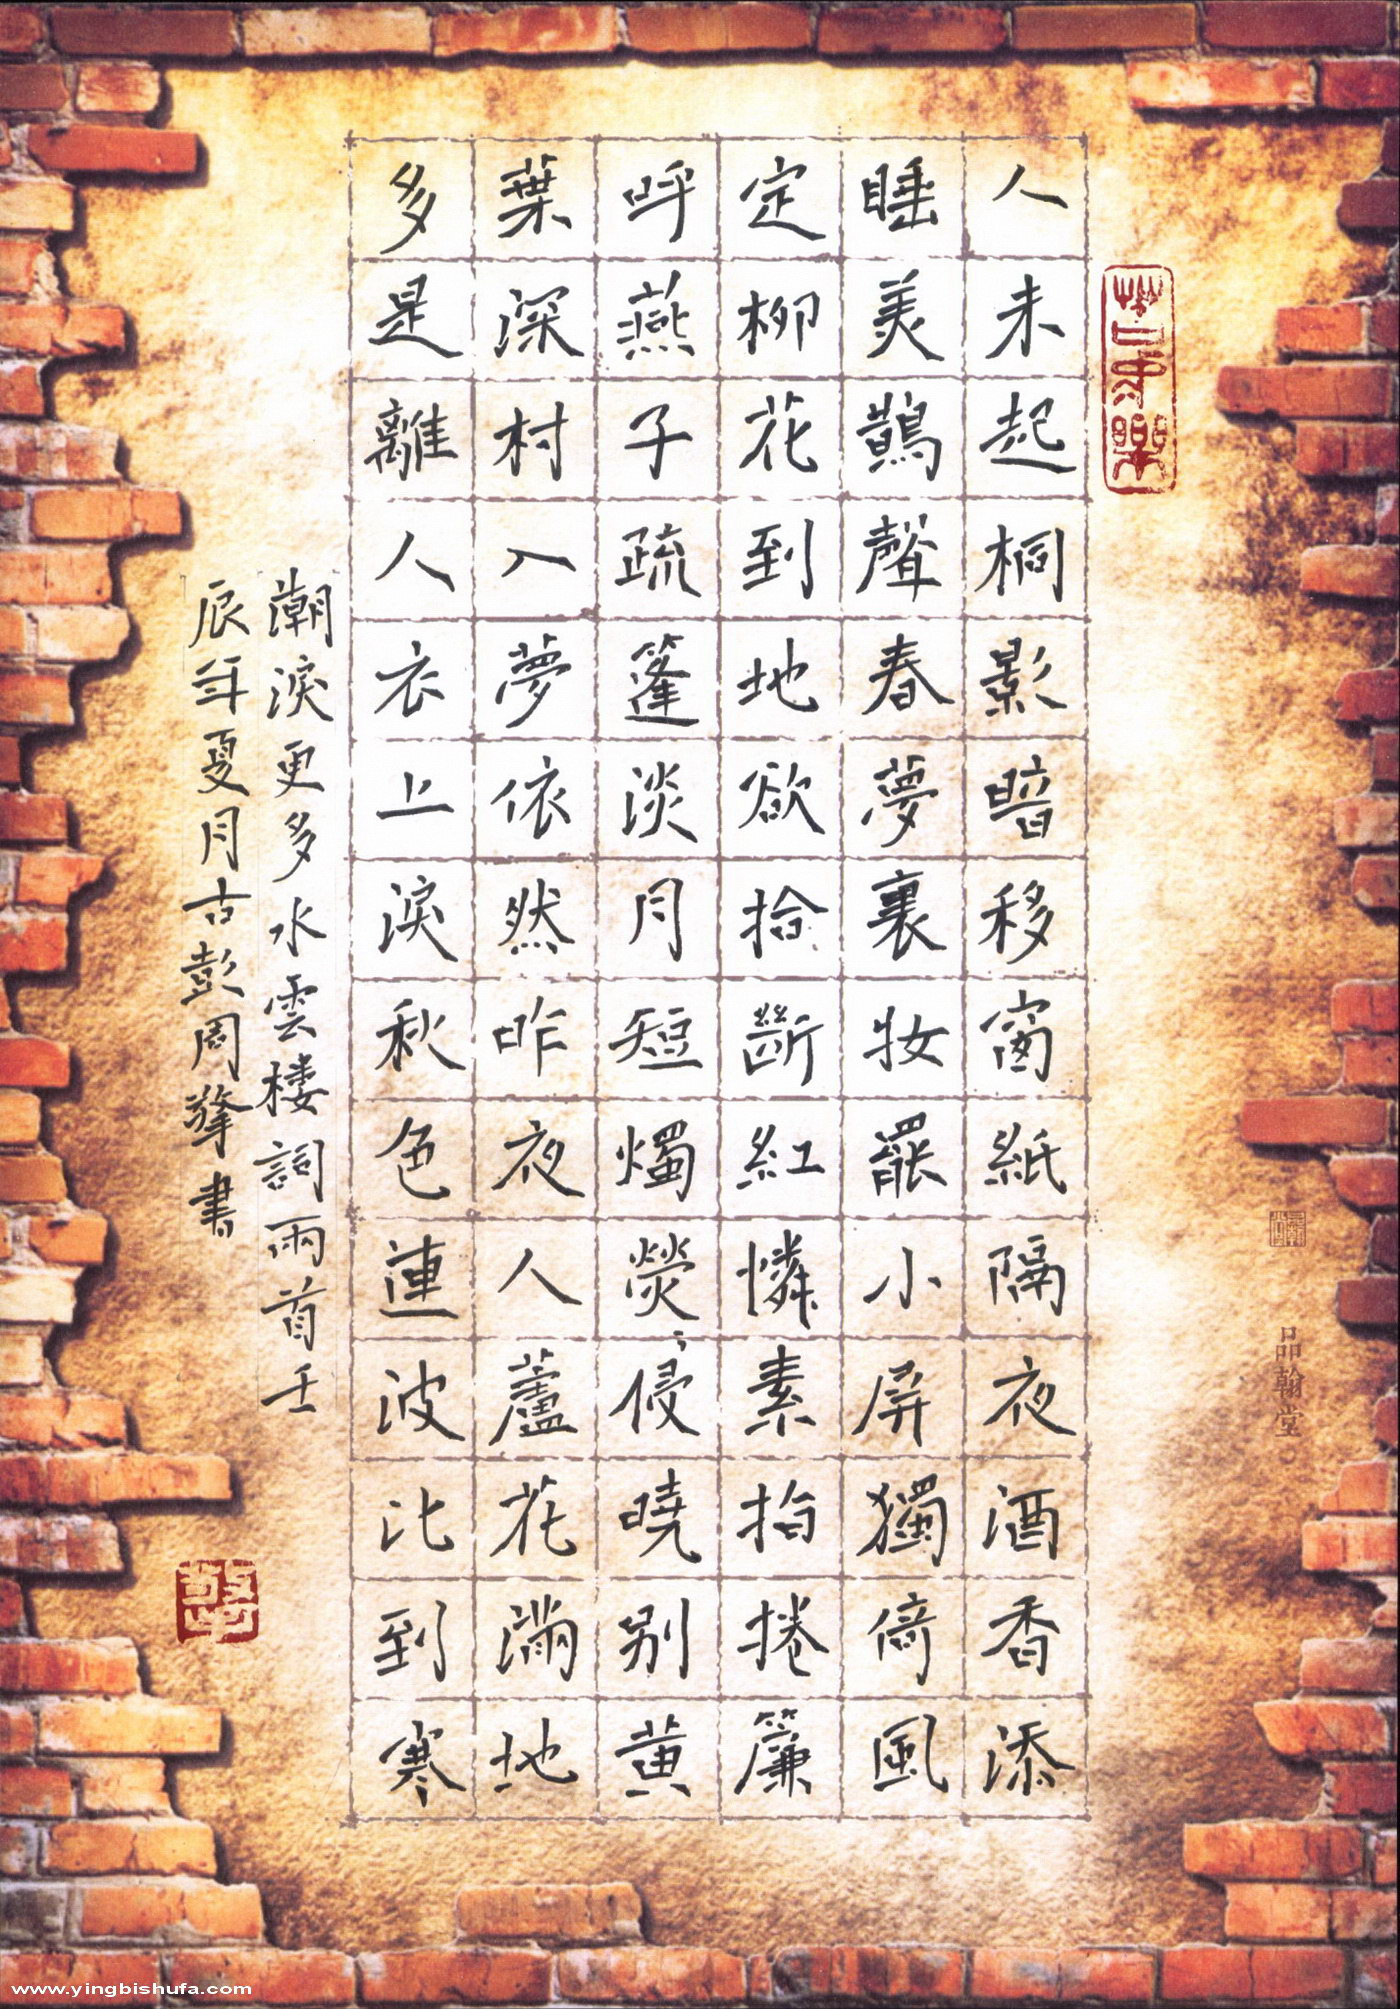 人未起桐影暗移窗紙隔夜酒香添
睡美鵲聲春夢裏妝罷小屏獨倚風
定柳花到地欲拾斷紅憐素抬捲簾
呼燕子疏篷淡月短燭熒侵曉別黃
葉深村入夢依然昨夜人蘆花滿地
多是離人衣上淚秋色連波比到寒
潮淚更多水雲楼詞兩首壬
辰年夏月古彭周擎書
品翰堂
www.yingbishufa.com